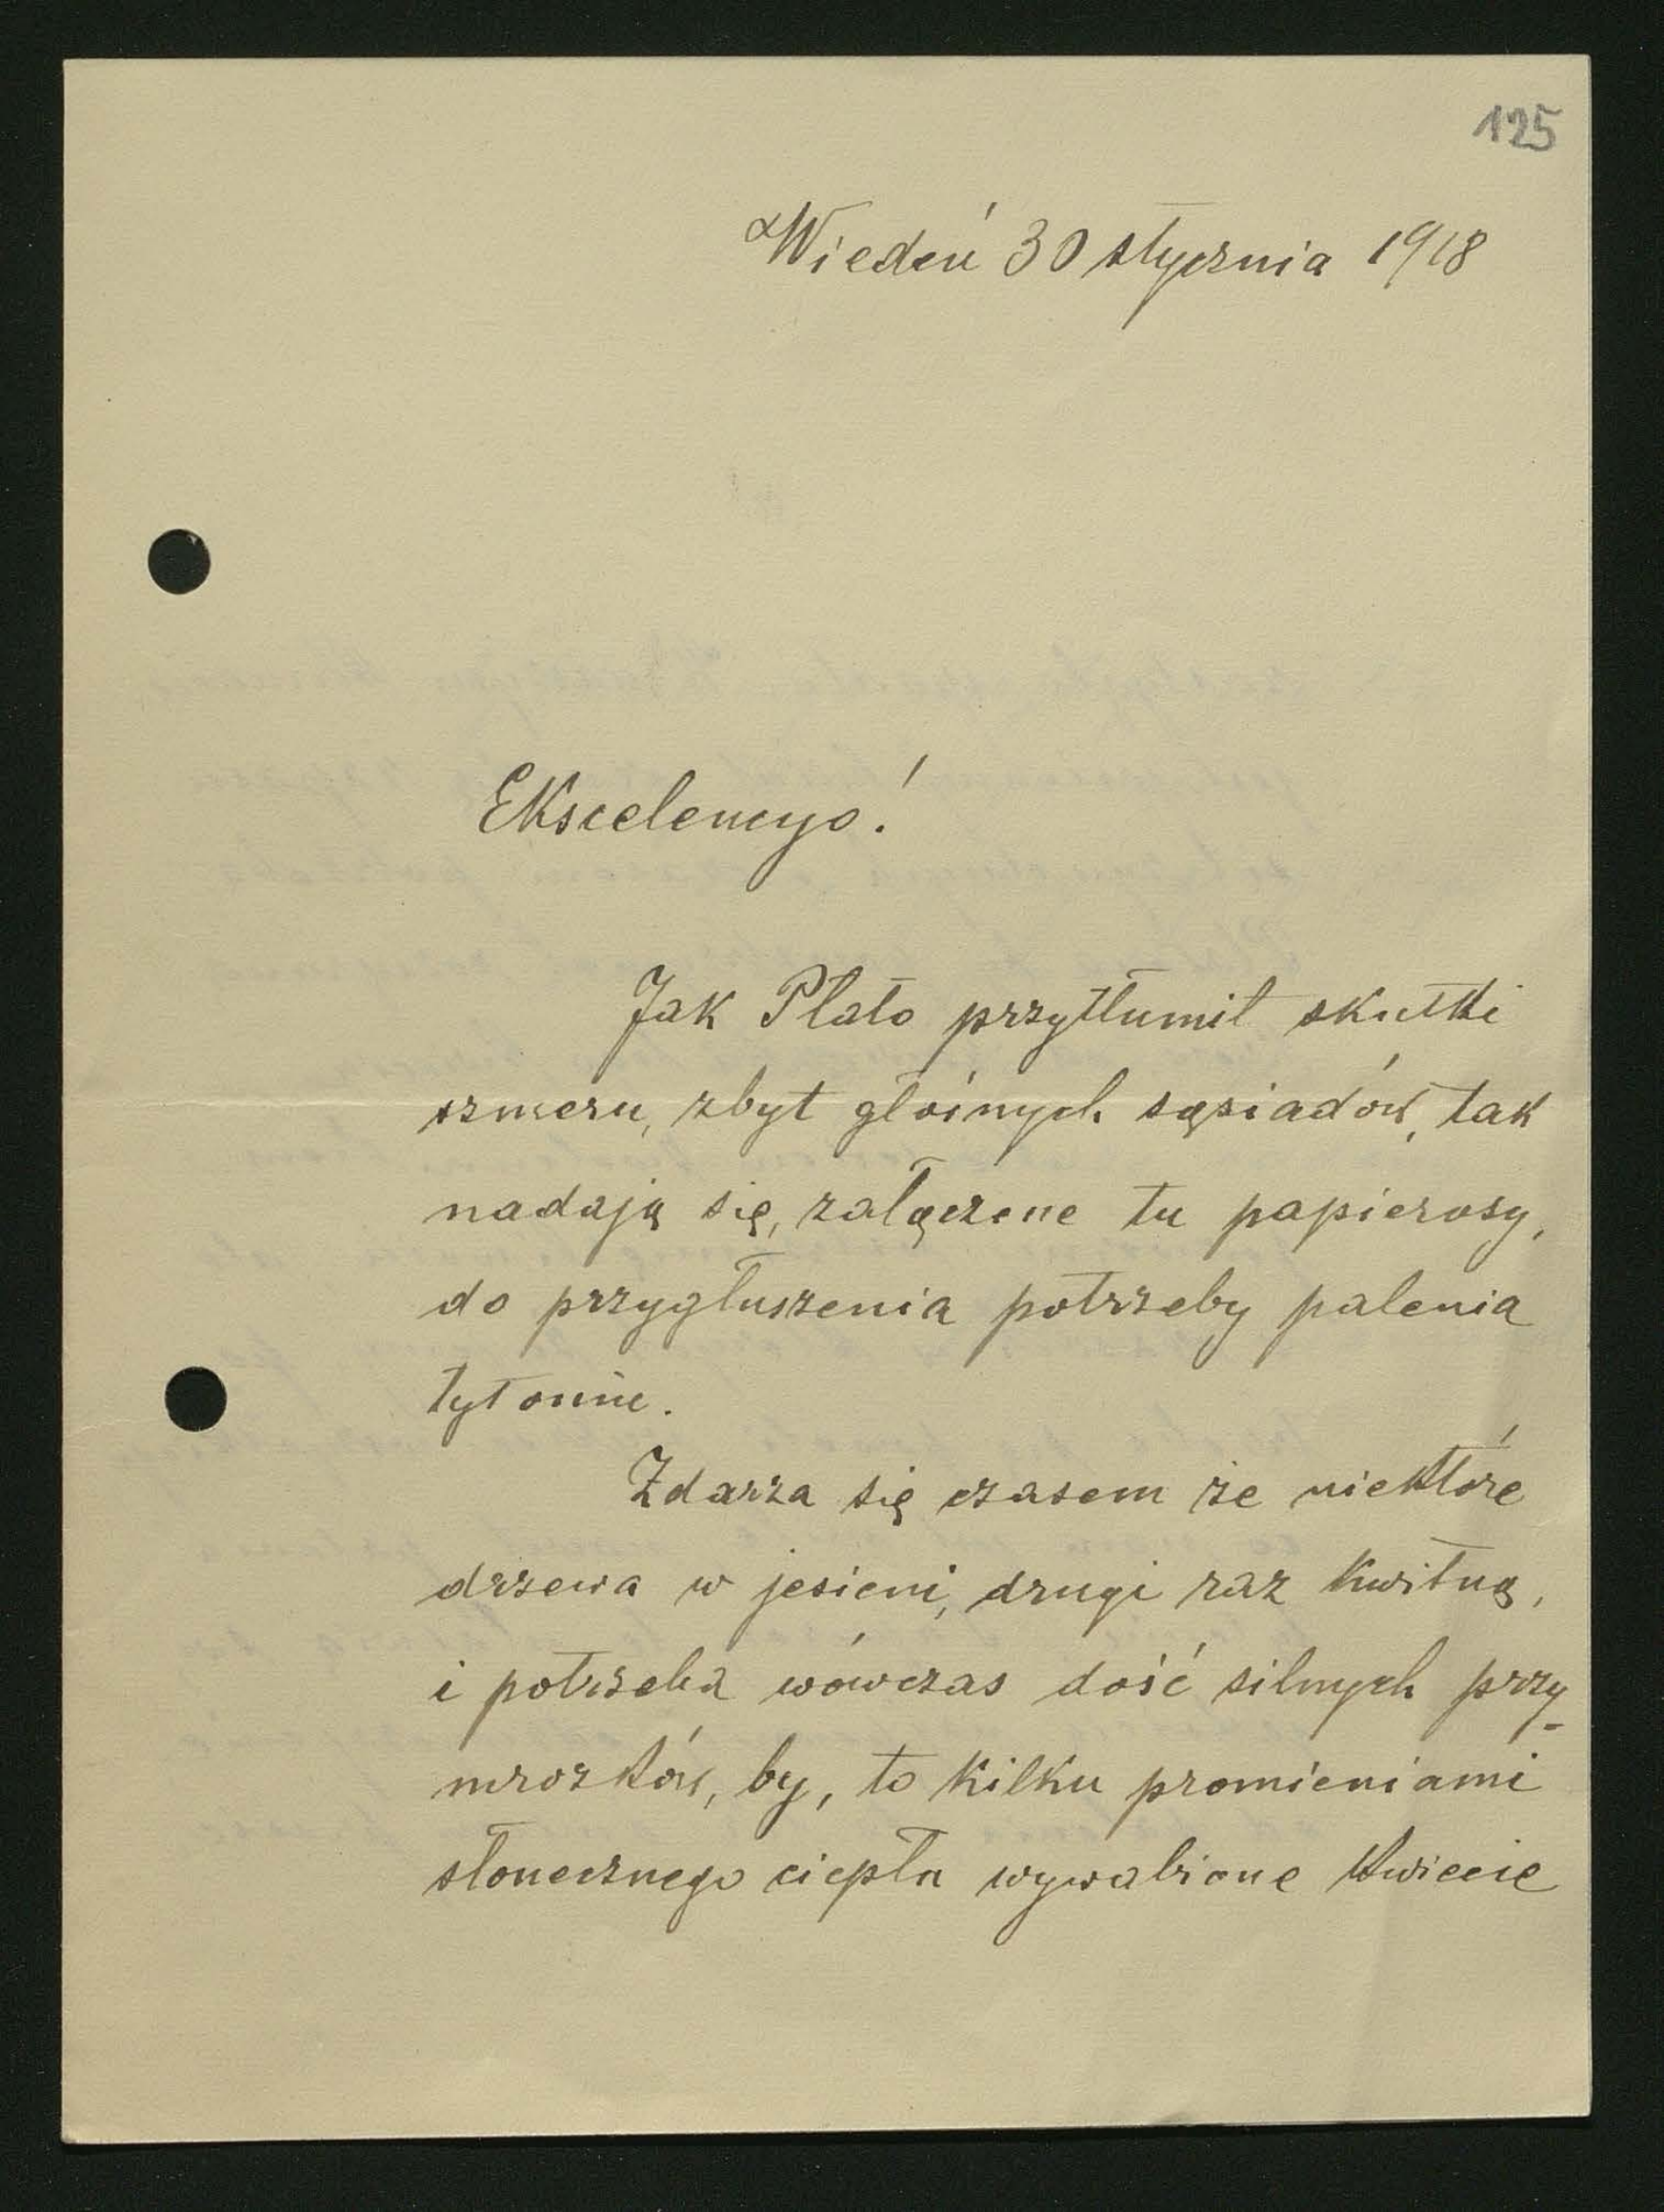 125
Wiedeń 30 stycznia 1918
Ekscelencyo!
Jak Plato przytłumił skutki
szmeru, zbyt głośnych sąsiadów, tak
nadają się, załączone tu papierosy,
do przygłuszenia potrzeby palenia
tytoniu.
Zdarza się czasem że niektóre
drzewa w jesieni, drugi raz kwitną,
i potrzeba wówczas dość silnych przy-
mrozków, by, to kilku promieniami
słonecznego ciepła wywabione kwiecie